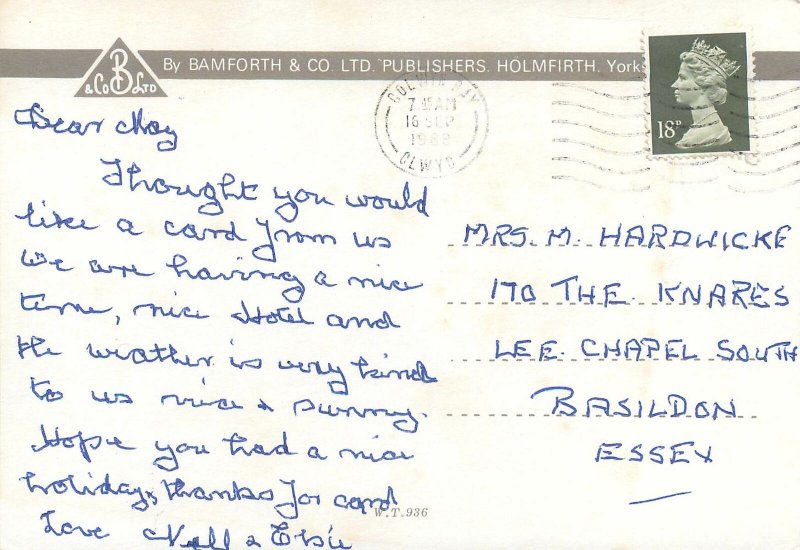 B
& Co LTD
By BAMFORTH & CO. LTD. PUBLISHERS. HOLMFIRTH. Yorks
COLWYN BAY
7.45 AM
16 SEP
1988
CLWYD
18P
Dear May
Thought you would
like a card from us
We are having a nice
time, nice Hotel and
the weather is very kind
to us nice & sunny.
Hope you had a nice
holiday, thanks for card
Love Nell & Elsie
MRS. M. HARDWICKE
170 THE KNARES
LEE CHAPEL SOUTH
BASILDON
ESSEX
W.T.936